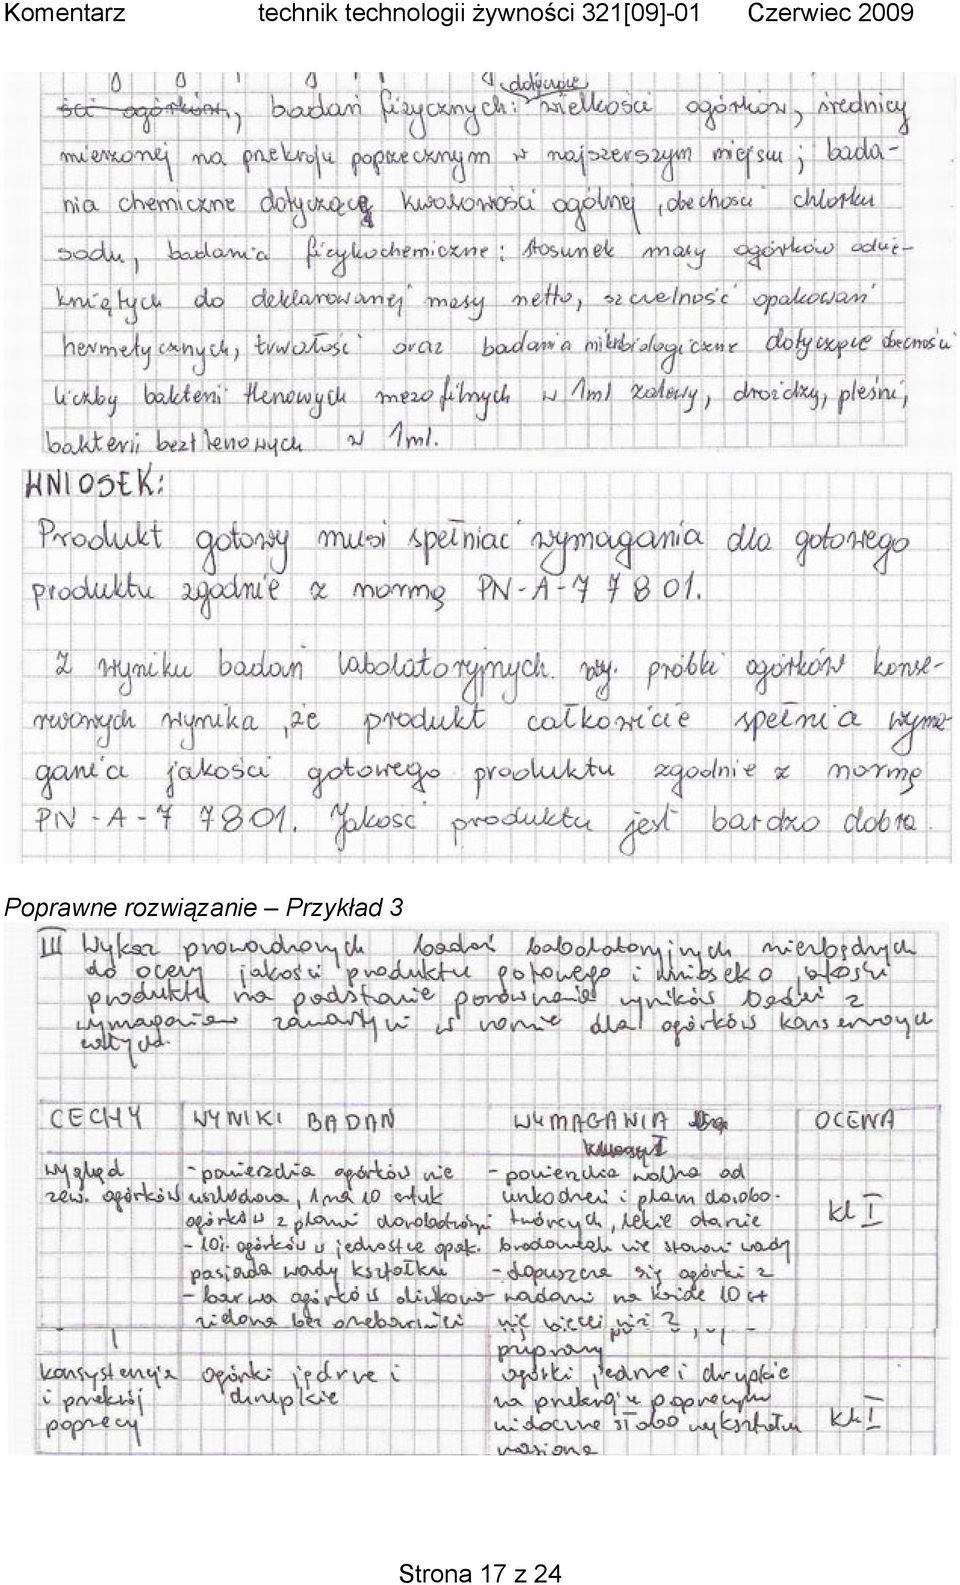 Komentarz technik technologii żywności 321[09]-01 Czerwiec 2009
ści ogórków, badań fizycznych: dotyczące wielkości ogórków, średnicy
mierzonej na przekroju poprzecznym w najszerszym miejscu; bada-
nia chemiczne dotyczące kwasowości ogólnej, obecności chlorku
sodu, badania fizykochemiczne: stosunek masy ogórków odsą-
kniętych do deklarowanej masy netto, szczelność opakowań
hermetycznych, trwałość oraz badania mikrobiologiczne dotyczące obecności
liczby bakterii tlenowych mezofilnych w 1ml zalewy, drożdży, pleśni,
bakterii beztlenowych w 1ml.
WNIOSEK:
Produkt gotowy musi spełniać wymagania dla gotowego
produktu zgodnie z normą PN-A-77801.
Z wyniku badań labolatoryjnych próbki ogórków konse-
rwowych wynika, że produkt całkowicie spełnia wyma-
gania jakości gotowego produktu zgodnie z normą
PN-A-77801. Jakość produktu jest bardzo dobra.
Poprawne rozwiązanie – Przykład 3
III Wykaz prowadzonych badań labolatoryjnych niezbędnych
do oceny jakości produktu gotowego i wniosek o jakości
produktu na podstawie porównania wyników badań z
wymagania zawartymi w normie dla ogórków konserwowych
CECHY WYNIKI BADAŃ WYMAGANIA OCENA
klasy I
wygląd - powierzchnia ogórków nie - powierzchnia wolna od
zew. ogórków uszkodzona, 1 na 10 sztuk uszkodzeń i plam chorobo-
ogórków z plami chorobotwórczymi twórczych, lekkie otarcie kl I
- 10% ogórków w jednostce opak. brodawek nie stanowi wady
posiada wady kształtu - dopuszcza się ogórki z
- barwa ogórków oliwkowo- wadami na każde 10 szt
zielona bez przebarwień nie więcej niż 2
konsystencja ogórki jędrne i ogórki jędrne i chrupkie
i przekrój chrupkie na przekroju poprzecznym kl I
poprzeczny widoczne słabo wykształcone
nasiona
Strona 17 z 24